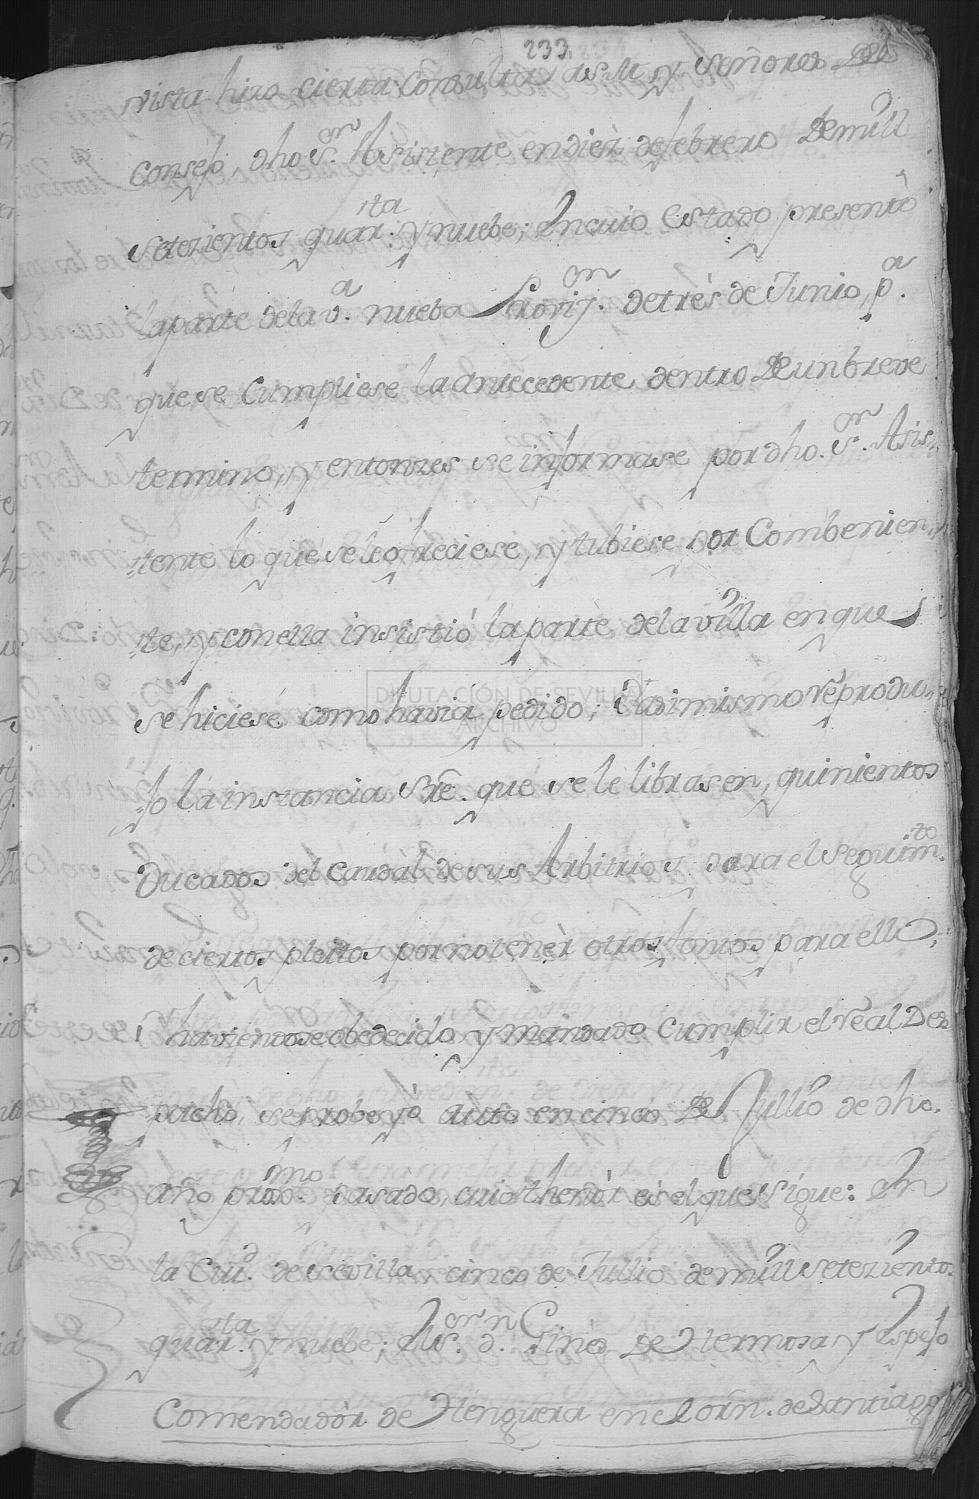 233
vista hizo cierta Consulta a S. M. y Señores del
Consejo, dho Sr. Assistente en diez de febrero de mill
setezientos quar.ta y nuebe; En cuio Estado presentò
la parte de la va. nueba Provij.on de tres de Junio, pa.
que se Cumpliese la antecedente dentro de un breve
termino, y entonzes se informase por dho. Sr. Asis-
tente lo que se le ofreciese, y tubiese por Combenien-
te, y con ella insistió la parte de la villa en que
se hiciese como havia pedido; Y asimismo reprodu-
jo la instancia sre. que se le librasen, quinientos
Ducados del Caudal de sus Arbitrios para el Seguim.to
de ciertos pleitos por no tener otros fondos para ello;
Y haviendose obedecido y mandado Cumplir el real Des-
pacho, se probeyó auto en cinco de Jullio de dho.
año proximo. pasado, cuio thenòr es el que sigue: En
la Ciud. de Sevilla cinco de Jullio de mill setezientos.
quar.ta y nuebe; El Sr. Dn. Ginés de Hermosa y Espejo
Comendadòr de Henguera en el orn. de Santiago
DIPUTACIÓN DE SEVILLA
ARCHIVO